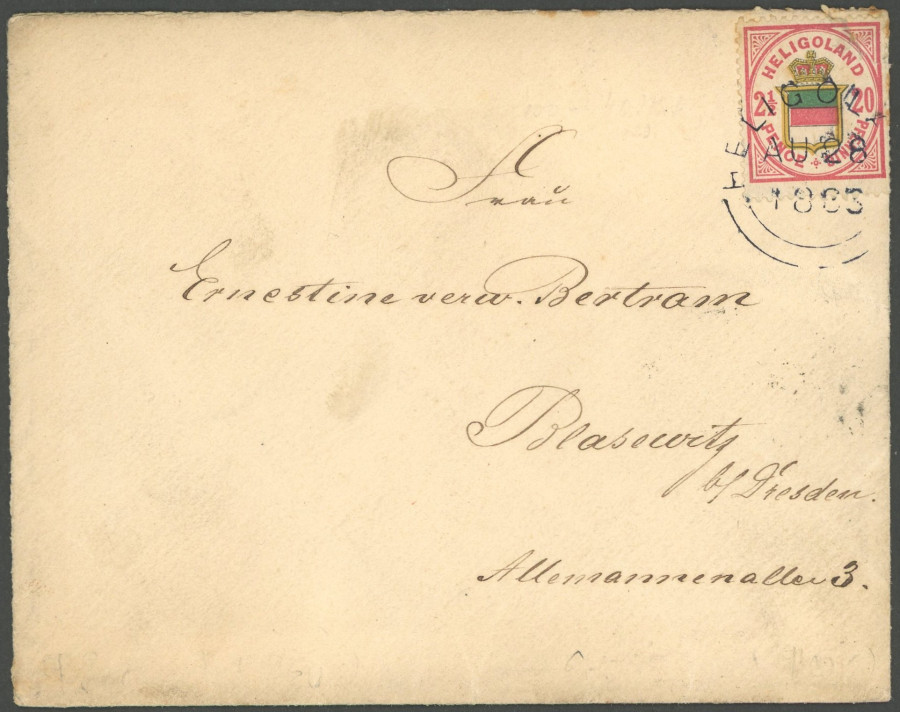 HELIGOLAND
2½ 20
PENCE PFENNIG
HELIGOLAND
AU 28
1885
Frau
Ernestine verw. Bertram
Blasewitz
b/ Dresden.
Allemannenallee 3.